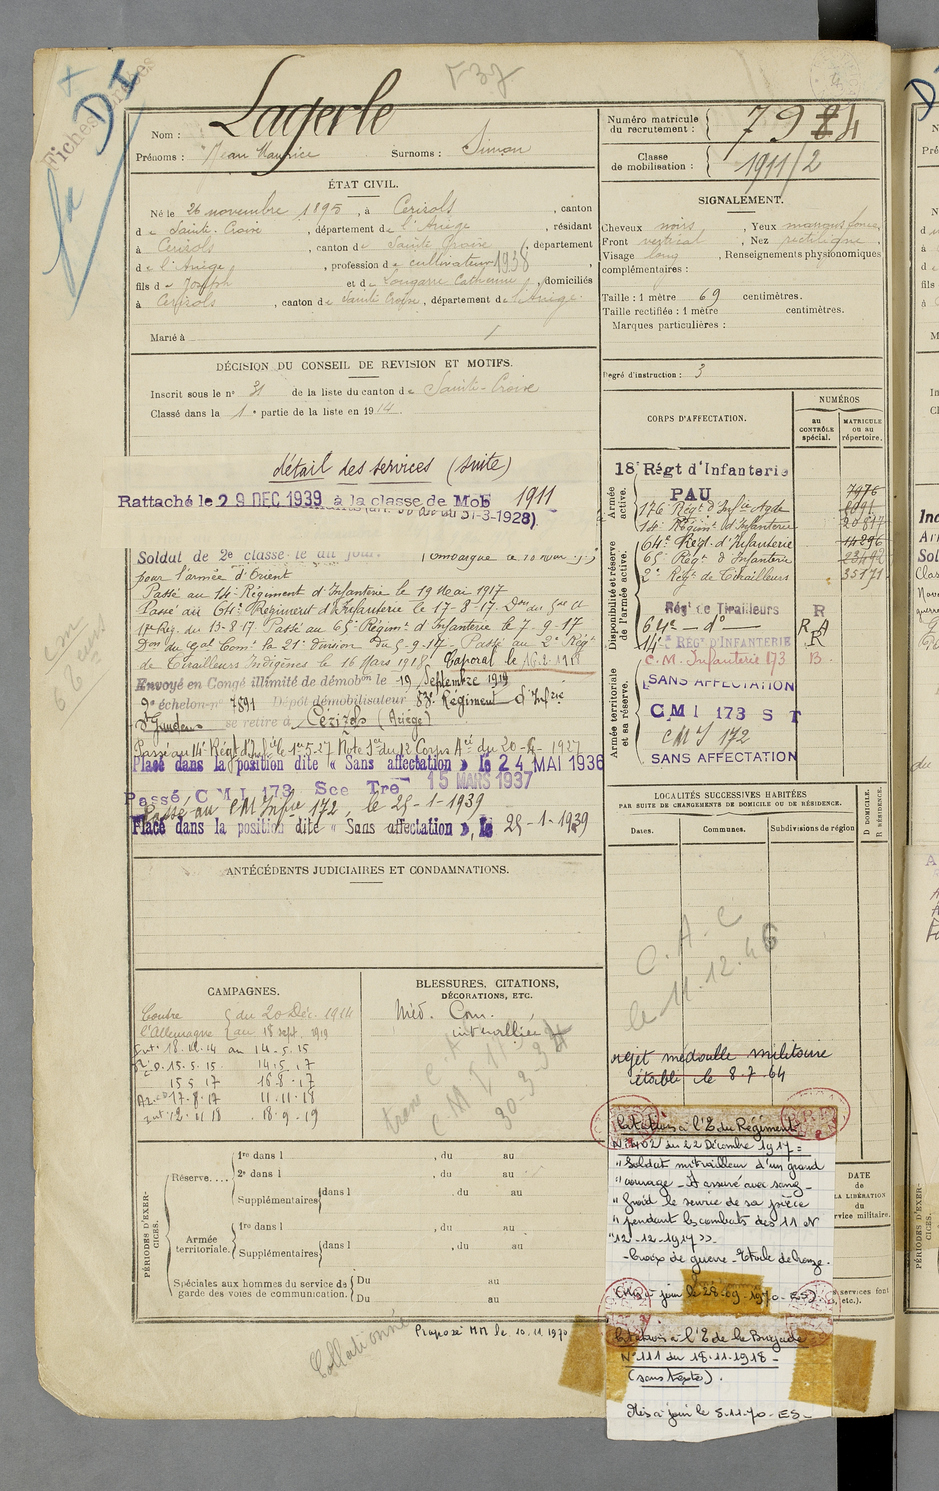 Fiches
DI
F37
Lagerle
Nom :
Prénoms : Jean Maurice Surnoms : Simon
Numéro matricule
du recrutement :
Classe
de mobilisation : 1911/2
ÉTAT CIVIL.
Né le 26 novembre 1895, à Cerisols, canton
de Sainte-Croix, département de l'Ariège, résidant
à Cerisols, canton de Sainte Croix, département
de l'Ariège, profession de cultivateur 1938
fils de Joseph et de Longarre Catherine, domiciliés
à Cerisols, canton de Sainte Croix, département de l'Ariège.
Marié à
SIGNALEMENT.
Cheveux noirs, Yeux
Front vertical, Nez rectiligne,
Visage long, Renseignements physionomiques
complémentaires :
Taille : 1 mètre 69 centimètres.
Taille rectifiée : 1 mètre centimètres.
Marques particulières :
Degré d'instruction : 3
DÉCISION DU CONSEIL DE REVISION ET MOTIFS.
Inscrit sous le n° 31 de la liste du canton de Sainte-Croix
Classé dans la 1e partie de la liste en 1914.
détail des services (suite)
Rattaché le 29 DEC 1939 à la classe de Mob 1911
31-3-1928)
Soldat de 2e classe le dit jour.
pour l'armée d'Orient
Passé au 14e Régiment d'Infanterie le 19 Mai 1917
Passé au 64e Régiment d'Infanterie le 17-8-17.
du 13-8-17. Passé au 65e Régimt d'Infanterie le 7-9-17
Don du Gal Comt la 21e Division du 5-9-17 - Passé au 2e Régt
de Tirailleurs Indigènes le 16 Mars 1918. Caporal le
Envoyé en Congé illimité de démobon le 19 Septembre 1919
échelon n° 7891 Dépôt démobilisateur 83e Régiment d'Infrie
St Gaudens se retire à Cérizols (Ariège)
Passé au 14e Régt d'Infie le 1er-5-27 Note Sce du 12 Corps Aée du 20-4-1927
Placé dans la position dite « Sans affectation » le 24 MAI 1936
Passé C M I 173 Sce Tre 15 MARS 1937
Passé au CM Infie 172, le 25-1-1939
Placé dans la position dite « Sans affectation », le 25-1-1939
CORPS D'AFFECTATION.
NUMÉROS
au
CONTRÔLE
spécial.
MATRICULE
ou au
répertoire.
Armée
active.
Disponibilité et réserve
de l'armée active.
Armée territoriale
et sa réserve.
18 Régt d'Infanterie
PAU 7976
176e Régt d'Infie Agde
14e Régimt d'Infanterie 20817
64e Régt d'Infanterie 14296
65e Régt d'Infanterie 23492
2e Régt de Tirailleurs 35171
Régt de Tirailleurs R
64e - do - R A
14e RÉGt D'INFANTERIE R
C.M. Infanterie 173 B.
SANS AFFECTATION
C M I 173 S T
CMI 172
SANS AFFECTATION
LOCALITÉS SUCCESSIVES HABITÉES
PAR SUITE DE CHANGEMENTS DE DOMICILE OU DE RÉSIDENCE.
Dates. Communes. Subdivisions de région
D DOMICILE.
R RÉSIDENCE.
C.A.C
le 11.12.46
rejet médaille militaire
établi le 8.7.64
ANTÉCÉDENTS JUDICIAIRES ET CONDAMNATIONS.
CAMPAGNES.
Contre { du 20 Déc. 1914
l'Allemagne { au 18 sept. 1919
14.5.15
15.5.15
15 5 17 16.8.17
17.8.17 11.11.18
12.11.18 18.9.19
BLESSURES, CITATIONS,
DÉCORATIONS, ETC.
Méd. Com.
interalliée
C M I 173
30-3-34
PÉRIODES D'EXERCICES.
Réserve....
1re dans l , du au
2e dans l , du au
Supplémentaires dans l , du au
Armée
territoriale.
1re dans l , du au
Supplémentaires dans l , du au
Spéciales aux hommes du service de
garde des voies de communication.
Du au
Du au
Citation à l'O du Régiment
N° 402 du 22 Décembre 1917 =
"Soldat mitrailleur d'un grand
"courage - A assuré avec sang -
"froid le service de sa pièce
"pendant les combats des 11 et
"12-12-1917 ».
- Croix de guerre - Etoile de bronze.
(Mis à jour le 28-09-1970 - ES)
Citation à l'O de la Brigade
N° 111 du 18.11.1918 -
(sans texte).
Mis à jour le 5.11.70 - ES -
DATE
de
LA LIBÉRATION
du
service militaire.
Collationné
Proposé MM le 10.11.1970